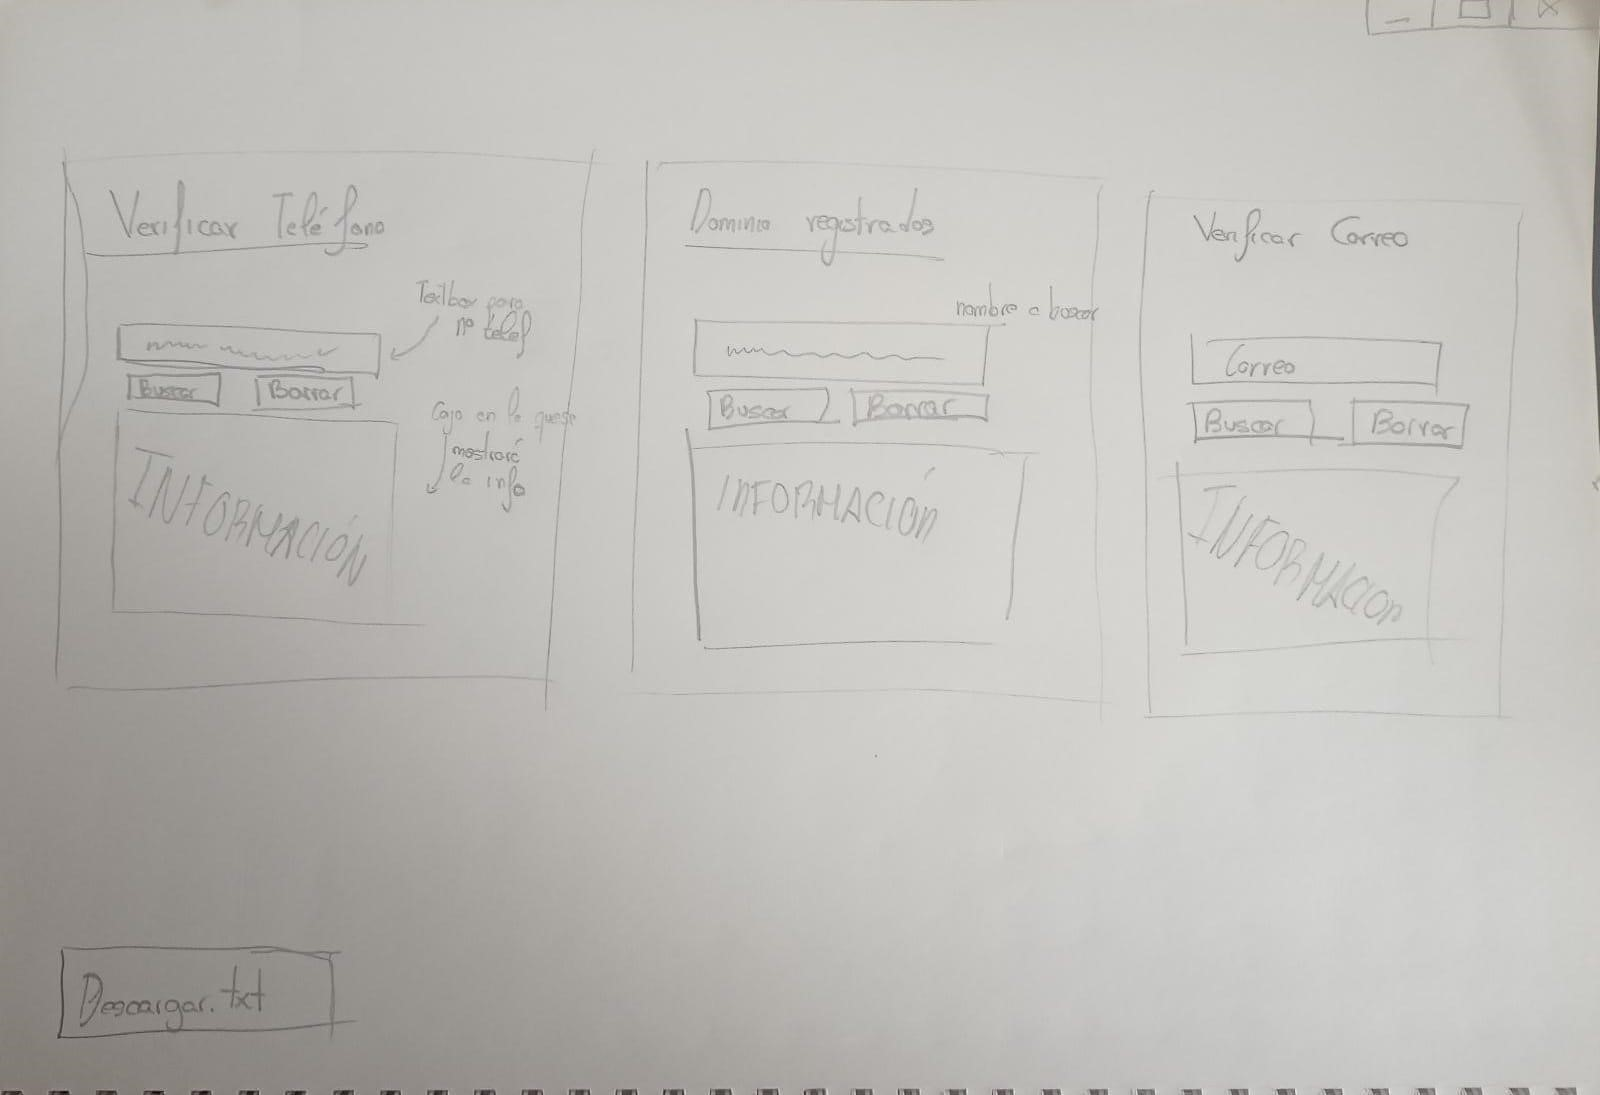 Verificar Teléfono
Textbox para
nº telef
Buscar
Borrar
Caja en la que se
mostrará
la info
INFORMACIÓN
Dominio registrados
nombre a buscar
Buscar
Borrar
INFORMACIÓN
Verificar Correo
Correo
Buscar
Borrar
INFORMACIOn
Descargar.txt